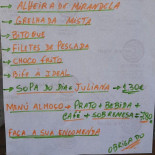 - ALHEIRA DE MIRANDELA
- GRELHADA MISTA
- BITOQUE
- FILETES DE PESCADA
- CHOCO FRITO
- BIFE À IDEAL
- SOPA DO DIA JULIANA → 1,30€
MENÚ ALMOÇO → PRATO + BEBIDA +
CAFÉ + SOBREMESA =
FAÇA A SUA ENCOMENDA
OBRIGADO